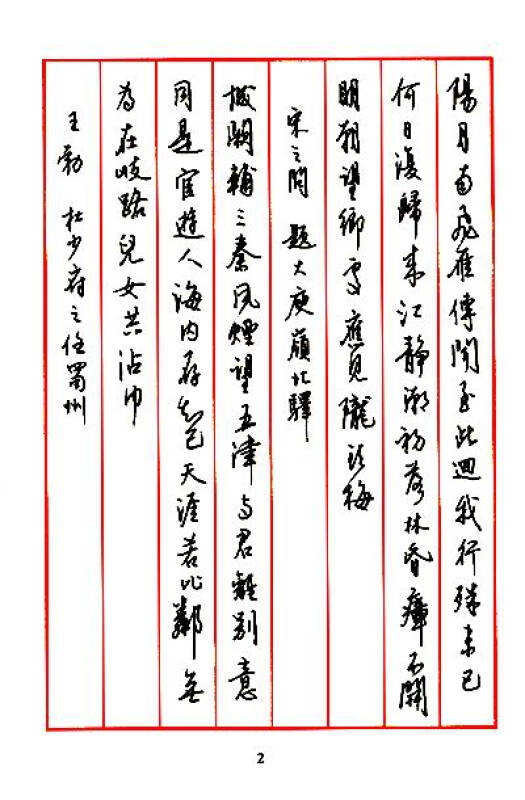 陽月南飛雁傳聞至此迴我行殊未已
何日復歸來江靜潮初落林昏瘴不開
明朝望鄉處應見隴頭梅
宋之問 題大庾嶺北驛
城闕輔三秦風煙望五津与君離別意
同是宦遊人海内存知己天涯若比鄰無
為在歧路兒女共沾巾
王勃 杜少府之任蜀州
2